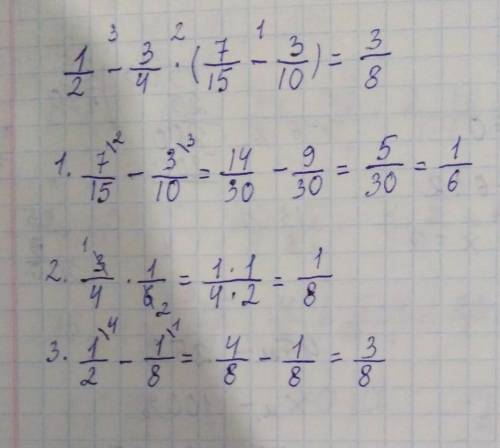 1/2 -³ 3/4 ·² (7/15 -¹ 3/10) = 3/8
1. 7\²/15 - 3\³/10 = 14/30 - 9/30 = 5/30 = 1/6
2. ¹3/4 · 1/6₂ = 1·1/4·2 = 1/8
3. 1\⁴/2 - 1\¹/8 = 4/8 - 1/8 = 3/8